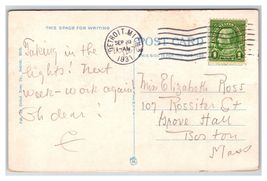 THIS SPACE FOR WRITING
POST CARD
DETROIT, MICH.
SEP
1-AM
1931
1
Taking in the
lights! Next
week - work again
Oh dear!
E
Miss Elizabeth Ross
107 Rossiter St
Grove Hall
Boston
Mass